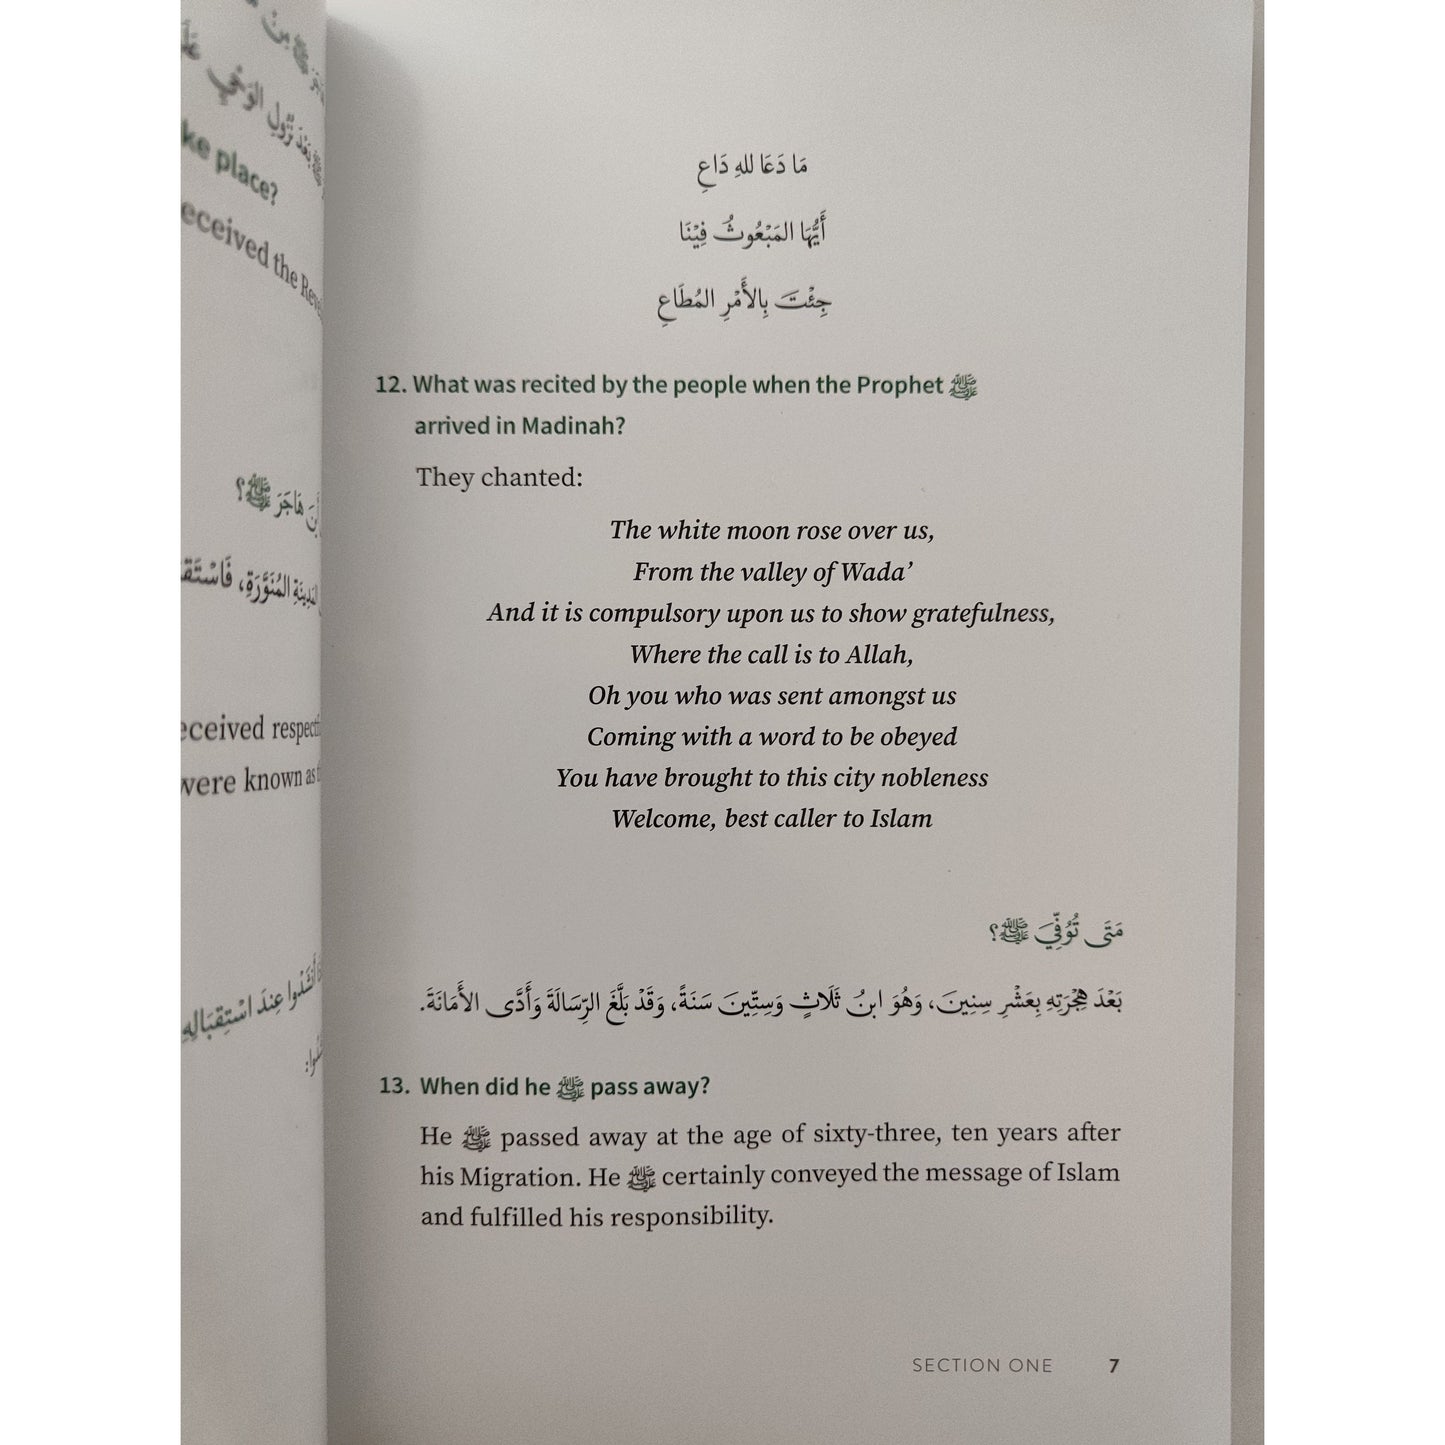 ke place?
eceived the
هَاجَرَ ﷺ؟
المُنَوَّرَةِ،
eceived
were known as
عِنْدَ اسْتِقْبَالِهِ
مَا دَعَا للهِ دَاعِ
أَيُّهَا المَبْعُوثُ فِيْنَا
جِئْتَ بِالأَمْرِ المُطَاعِ
12. What was recited by the people when the Prophet ﷺ
arrived in Madinah?
They chanted:
The white moon rose over us,
From the valley of Wada’
And it is compulsory upon us to show gratefulness,
Where the call is to Allah,
Oh you who was sent amongst us
Coming with a word to be obeyed
You have brought to this city nobleness
Welcome, best caller to Islam
مَتَى تُوُفِّيَ ﷺ؟
بَعْدَ هِجْرَتِهِ بِعَشْرِ سِنِينَ، وَهُوَ ابنُ ثَلَاثٍ وَسِتِّينَ سَنَةً، وَقَدْ بَلَّغَ الرِّسَالَةَ وَأَدَّى الأَمَانَةَ.
13. When did he ﷺ pass away?
He ﷺ passed away at the age of sixty-three, ten years after
his Migration. He ﷺ certainly conveyed the message of Islam
and fulfilled his responsibility.
SECTION ONE 7